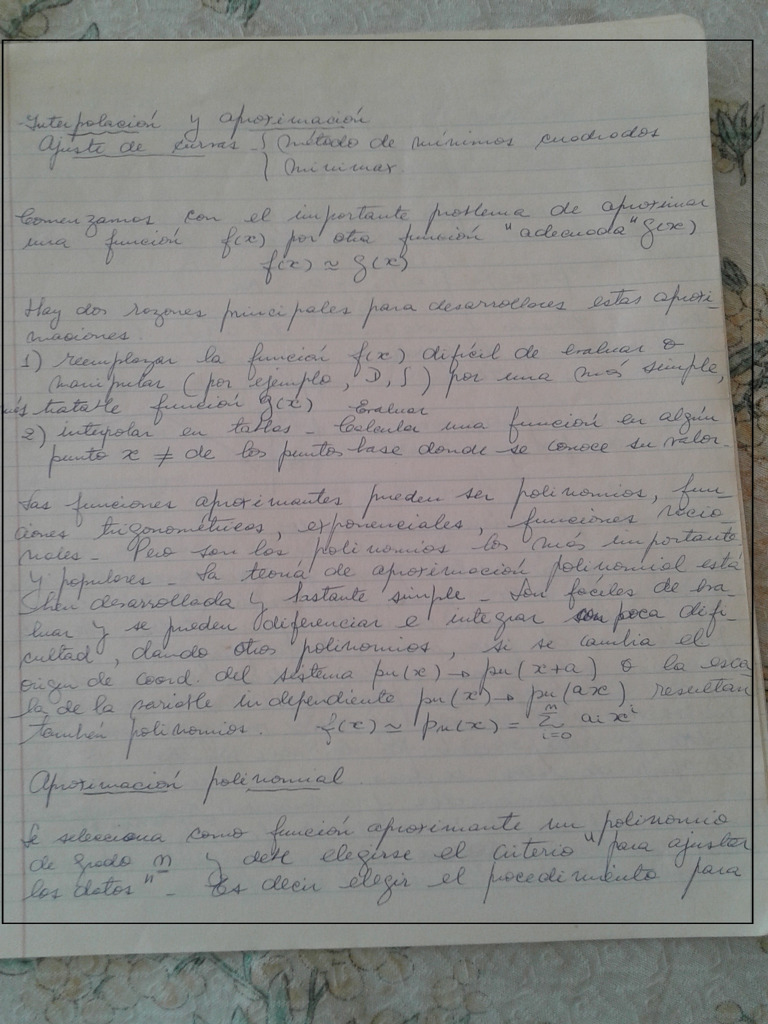 Interpolación y aproximación
Ajuste de curvas - { método de mínimos cuadrados
minimax.
Comenzamos con el importante problema de aproximar
una función f(x) por otra función "adecuada" g(x)
f(x) ≃ g(x)
Hay dos razones principales para desarrollar estas aproxi-
maciones.
1) reemplazar la función f(x) difícil de evaluar o
manipular (por ejemplo, D, ∫) por una más simple,
más tratable función g(x)
Evaluar
2) interpolar en tablas - Calcula una función en algún
punto x ≠ de los puntos base donde se conoce su valor.
Las funciones aproximantes pueden ser polinomios, fun-
ciones trigonométricas, exponenciales, funciones racio-
nales - Pero son los polinomios los más importantes
y populares - La teoría de aproximación polinomial está
bien desarrollada y bastante simple - Son fáciles de eva-
luar y se pueden diferenciar e integrar con poca difi-
cultad, dando otros polinomios, si se cambia el
origen de coord. del sistema pn(x) → pn(x+a) o la esca
la de la variable independiente pn(x) → pn(ax) resultan
también polinomios. f(x) ≃ pn(x) = Σ_{i=0}^{n} ai x^i
Aproximación polinomial
Se selecciona como función aproximante un polinomio
de grado n y debe elegirse el criterio "para ajustar
los datos" - Es decir elegir el pocedimiento para